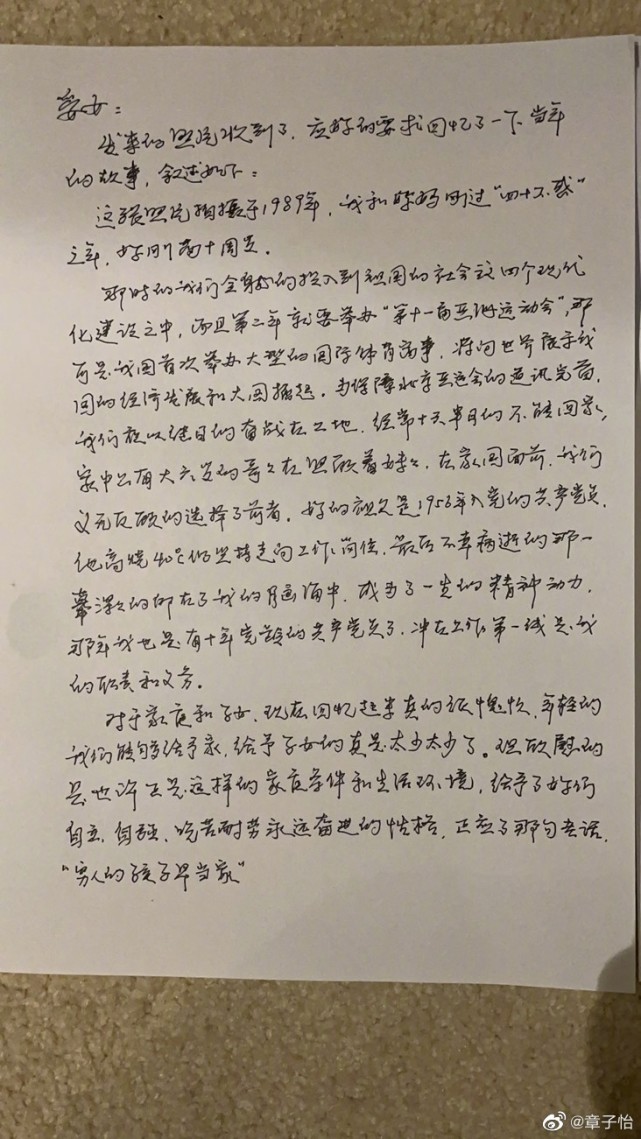 爱女：
发来的照片收到了，应你的要求回忆了一下当年
的故事，叙述如下：
这张照片拍摄于1989年，我和你妈刚过“四十不惑”
之年，你刚满十周岁。
那时的我们全身心的投入到祖国的社会主义四个现代
化建设之中，而且第二年就要举办“第十一届亚洲运动会”，那
可是我国首次举办大型的国际体育赛事，将向世界展示我
国的经济发展和大国崛起。为保障北京亚运会的通讯先前，
我们夜以继日的奋战在工地，经常十天半月的不能回家，
家中只有大六岁的哥哥在照顾着妹妹，在家国面前，我们
义无反顾的选择了前者。你的祖父是1953年入党的共产党员，
他高烧40℃仍坚持走向工作岗位，最后不幸病逝的那一
幕深深的印在了我的脑海中，成为了一生的精神动力，
那年我也是有十年党龄的共产党员了，冲在工作第一线是我
的职责和义务。
对于家庭和子女，现在回忆起来真的很愧疚，年轻的
我们能够给予家，给予子女的真是太少太少了。现欣慰的
是也许正是这样的家庭条件和生活环境，给予了你们
自立、自强、吃苦耐劳永远奋进的性格，正应了那句老话，
“穷人的孩子早当家”
@章子怡